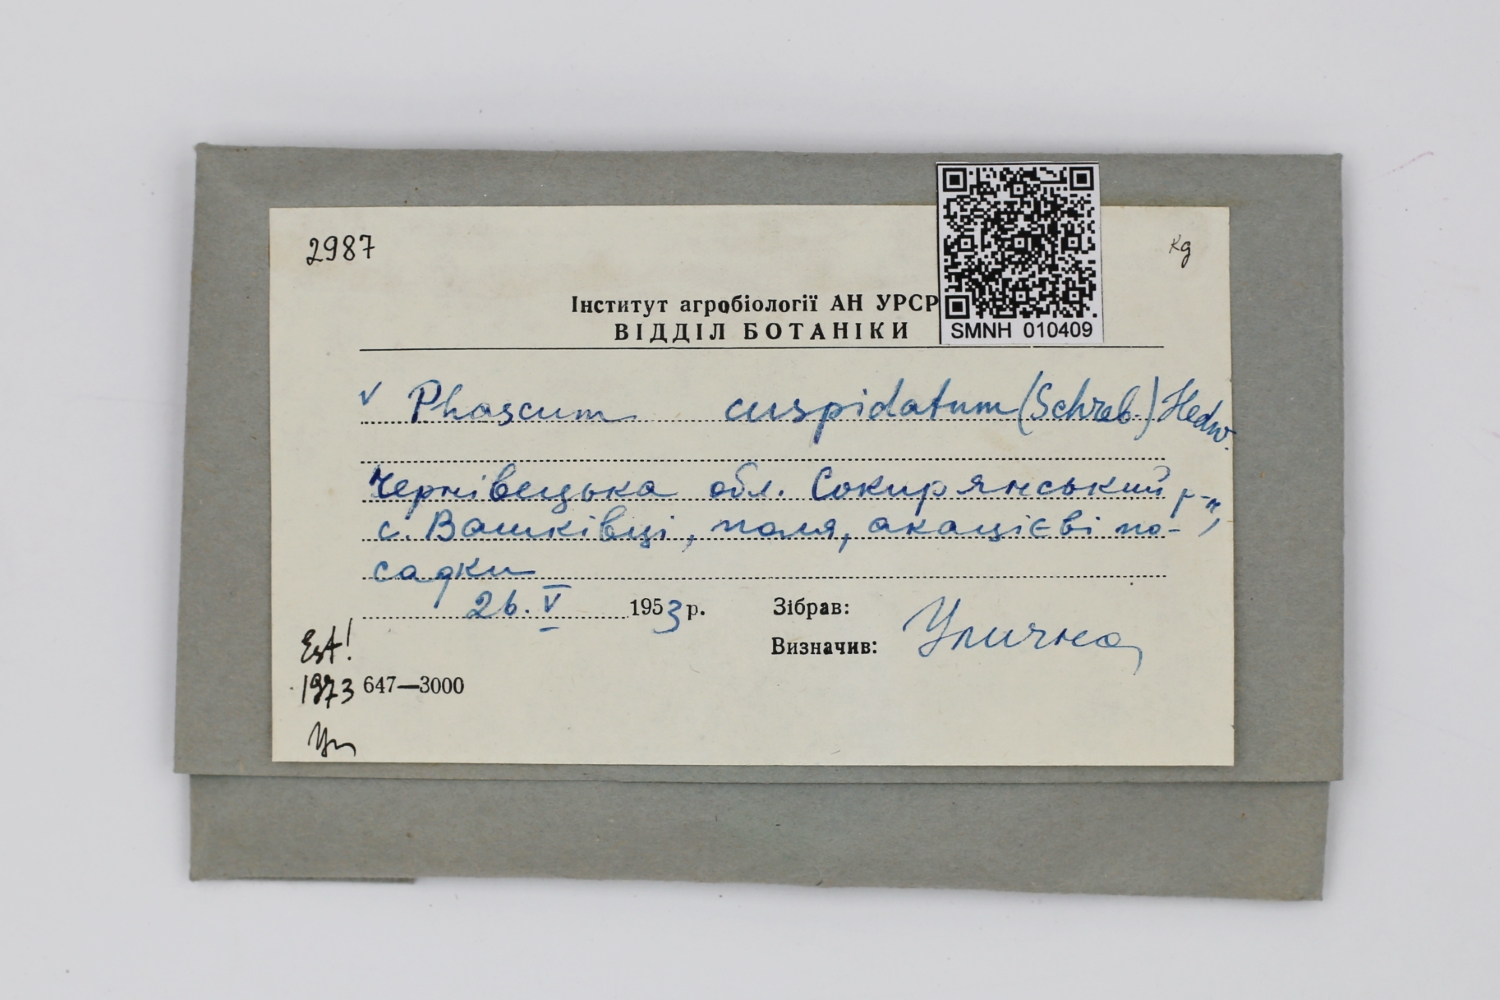 2987
кд
Інститут агробіології АН УРСР
ВІДДІЛ БОТАНІКИ
SMNH 010409
v Phascum cuspidatum (Schreb.) Hedw.
Чернівецька обл. Сокирянський р-н,
с. Вашківці, поля, акацієві по-
садки
26. V 1953 р.
Зібрав:
Визначив: Улична
Est!
1973
647—3000
Ул